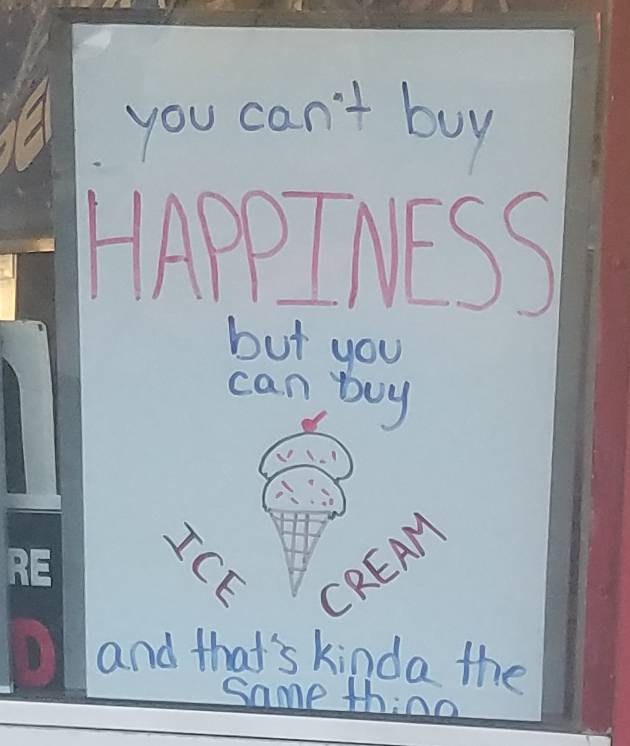 you can't buy
HAPPINESS
but you
can buy
ICE CREAM
and that's kinda the
same thing
RE
D